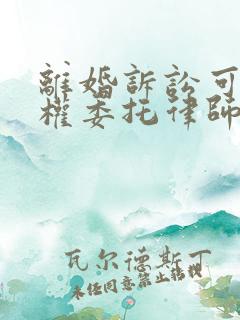 離婚訴訟可
權委托律師
瓦尔德斯丁
未经同意禁止转载